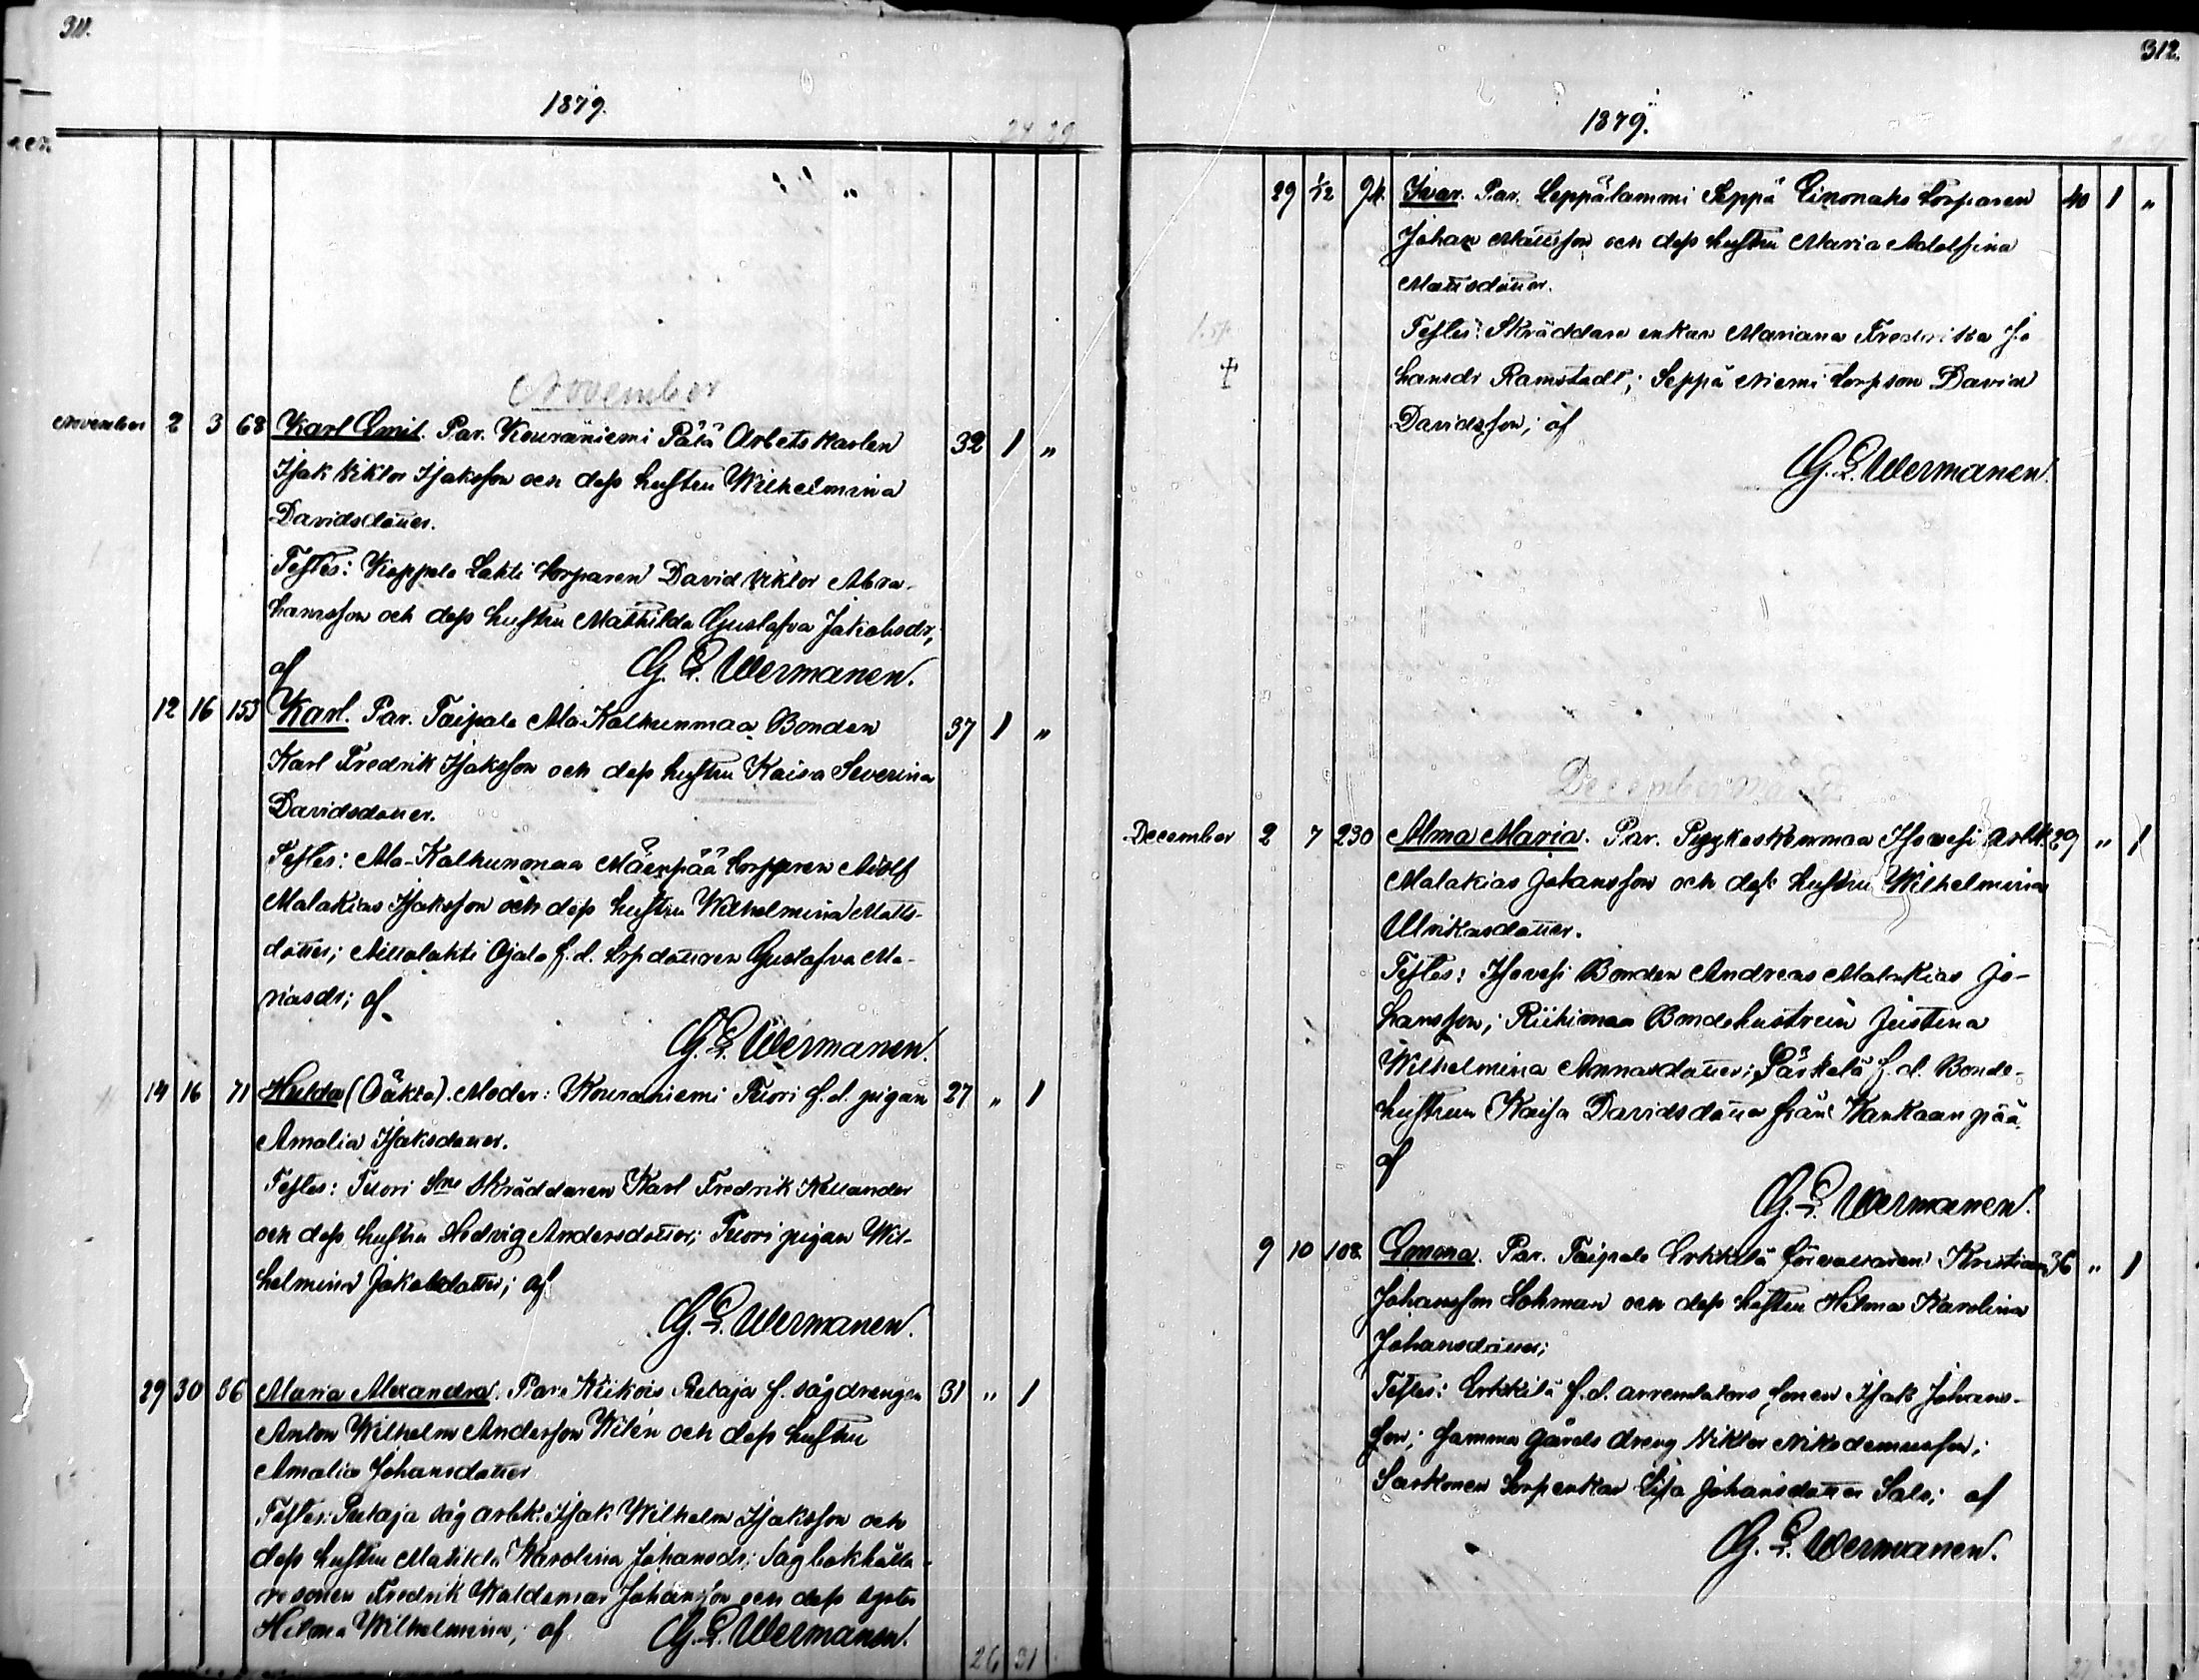 311.
1879.
24 29
November
November 2 3 68 Karl Emil. Par. Kouraniemi Pätä Arbetskarlen 32 1 "
Isak Viktor Isaksson och dess hustru Wilhelmina
Davidsdotter.
Testes: Koppelo Lahti torparen David Viktor Abra-
hamsson och dess hustru Mathilda Gustafva Jakobsdr;
af G. L. Wermanen.
12 16 153 Karl. Par. Taipale Ala-Kalkunmaa Bonden 37 1 "
Karl Fredrik Isaksson och dess hustru Kaisa Severina
Davidsdotter.
Testes: Ala-Kalkunmaa Mäenpää torparen Adolf
Malakias Isaksson och dess hustru Wilhelmina Matts-
dotter; Ojala f.d. Gustafva Ma-
riasdr; af
G. L. Wermanen.
14 16 71 Hulda (Oäkta). Moder: Kouraniemi Tuori f.d. pigan 27 " 1
Amalia Isaksdotter.
Testes: Tuori Skräddaren Karl Fredrik Kellander
och dess hustru Hedvig Andersdotter; Tuori pigan Wil-
helmina Jakobsdotter; af
G. L. Wermanen.
29 30 36 Maria Alexandra. Par. Kiikois Putaja f. sågdrengen 31 " 1
Anton Wilhelm Andersson Wilén och dess hustru
Amalia Johansdotter
Testes: Putaja såg arbk. Isak Wilhelm Isaksson och
dess hustru Matilda Karolina Johansdr; Sågbokhålla-
resonen Fredrik Waldemar Johansson och dess syster
Hilma Wilhelmina; af G. L. Wermanen.
26 31
312.
1879.
29 1/12 94. Ivar. Par. Leppälammi Seppä Einonaho torparen 40 1 "
Johan Mattsson och dess hustru Maria Adolfina
Mattsdotter.
Testes: Skräddare enkan Mariana Fredrika Jo
hansdr Ramstedt; Seppä Niemi torpson David
Davidsson; af
G. L. Wermanen.
December
December 2 7 230 Alma Maria. Par. Pyykoskonmaa Isovesi arbk. 29 " 1
Malakias Johansson och dess hustru Wilhelmina
Ulrikasdotter.
Testes: Isovesi Bonden Andreas Malakias Jo-
hansson; Riihimaa Bondehustrun Justina
Wilhelmina Annasdotter; Pärkelä f.d. Bonde-
hustrun Kaisa Davidsdotter från Kankaanpää.
af
G. L. Wermanen.
9 10 108. Emma. Par. Taipale Erkkilä förvaltaren Kristian 36 " 1
Johansson Lohman och dess hustru Hilma Karolina
Johansdotter;
Testes: Erkkilä f.d. arrendators sonen Isak Johans-
son; samma gårds dreng Viktor Nikodemusson;
Sarkonen torpenkan Lisa Johansdotter Salo; af
G. L. Wermanen.